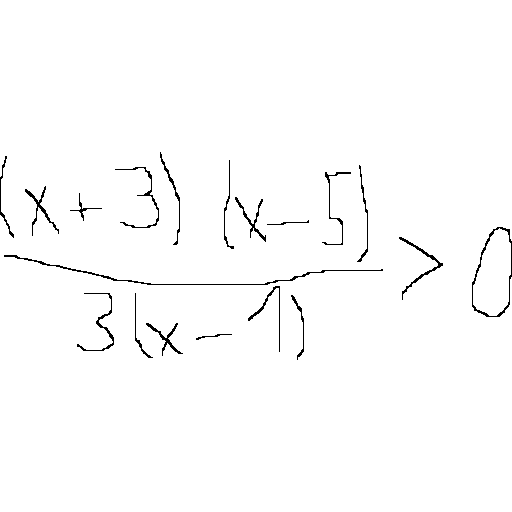 (x+3)(x-5)
3(x-1) > 0